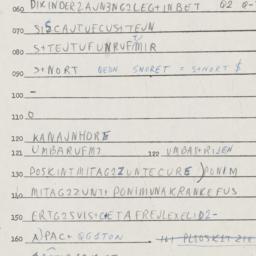 060 DIKINDERZAUN3NG2LEG+INBET Q2
070 SISCAUTUFCUS+TEUN
080 S+TEUTUFUNRUFMIR
090 S+NORT GEON SNORET = S+NORT $
100 -
110 O
120 KANAUNHORE
121 UMBARUFM? 122 UMBAHRIJEN
130 POSKINTMITAG2ZUNTECURE )PONIM
140 MITAG2ZUNT1 PONIMUNAKRANKEFUS
150 ERTG2SVIS+CHETAFREJLEXELID2-
160 A)PAC+ QGSTON